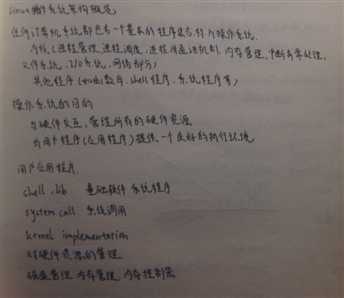 Linux操作系统架构概览
任何计算机系统都包含一个基本的程序集合,称为操作系统.
内核(进程管理,进程调度,进程间通讯机制,内存管理,中断异常处理,
文件系统,I/O系统,网络部分)
其他程序(例如函数库,shell程序,系统程序等)
操作系统的目的
与硬件交互,管理所有的硬件资源
为用户程序(应用程序)提供一个良好的执行环境
用户应用程序
shell,lib 基础软件 系统程序
system call 系统调用
kernel implementation
对硬件资源的管理
硬盘管理 内存管理 内存控制器